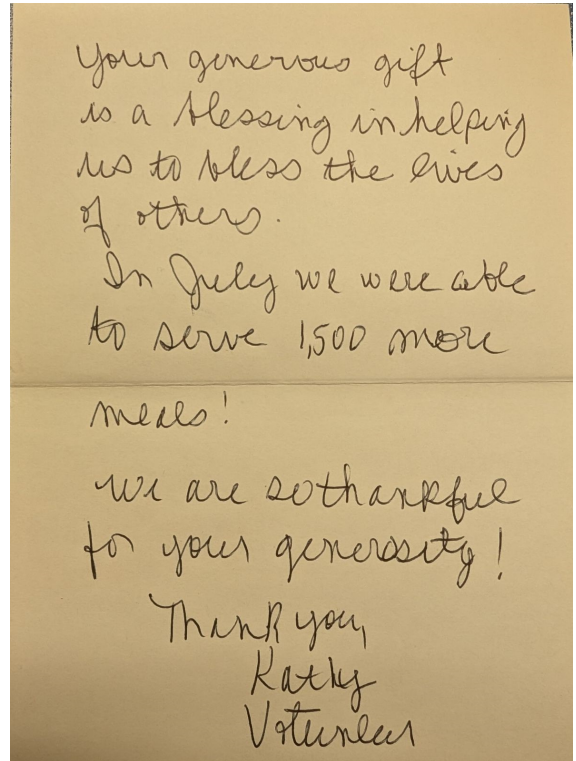 Your generous gift
is a blessing in helping
us to bless the lives
of others.
In July we were able
to serve 1,500 more
meals!
We are so thankful
for your generosity!
Thank you,
Kathy
Volunteer